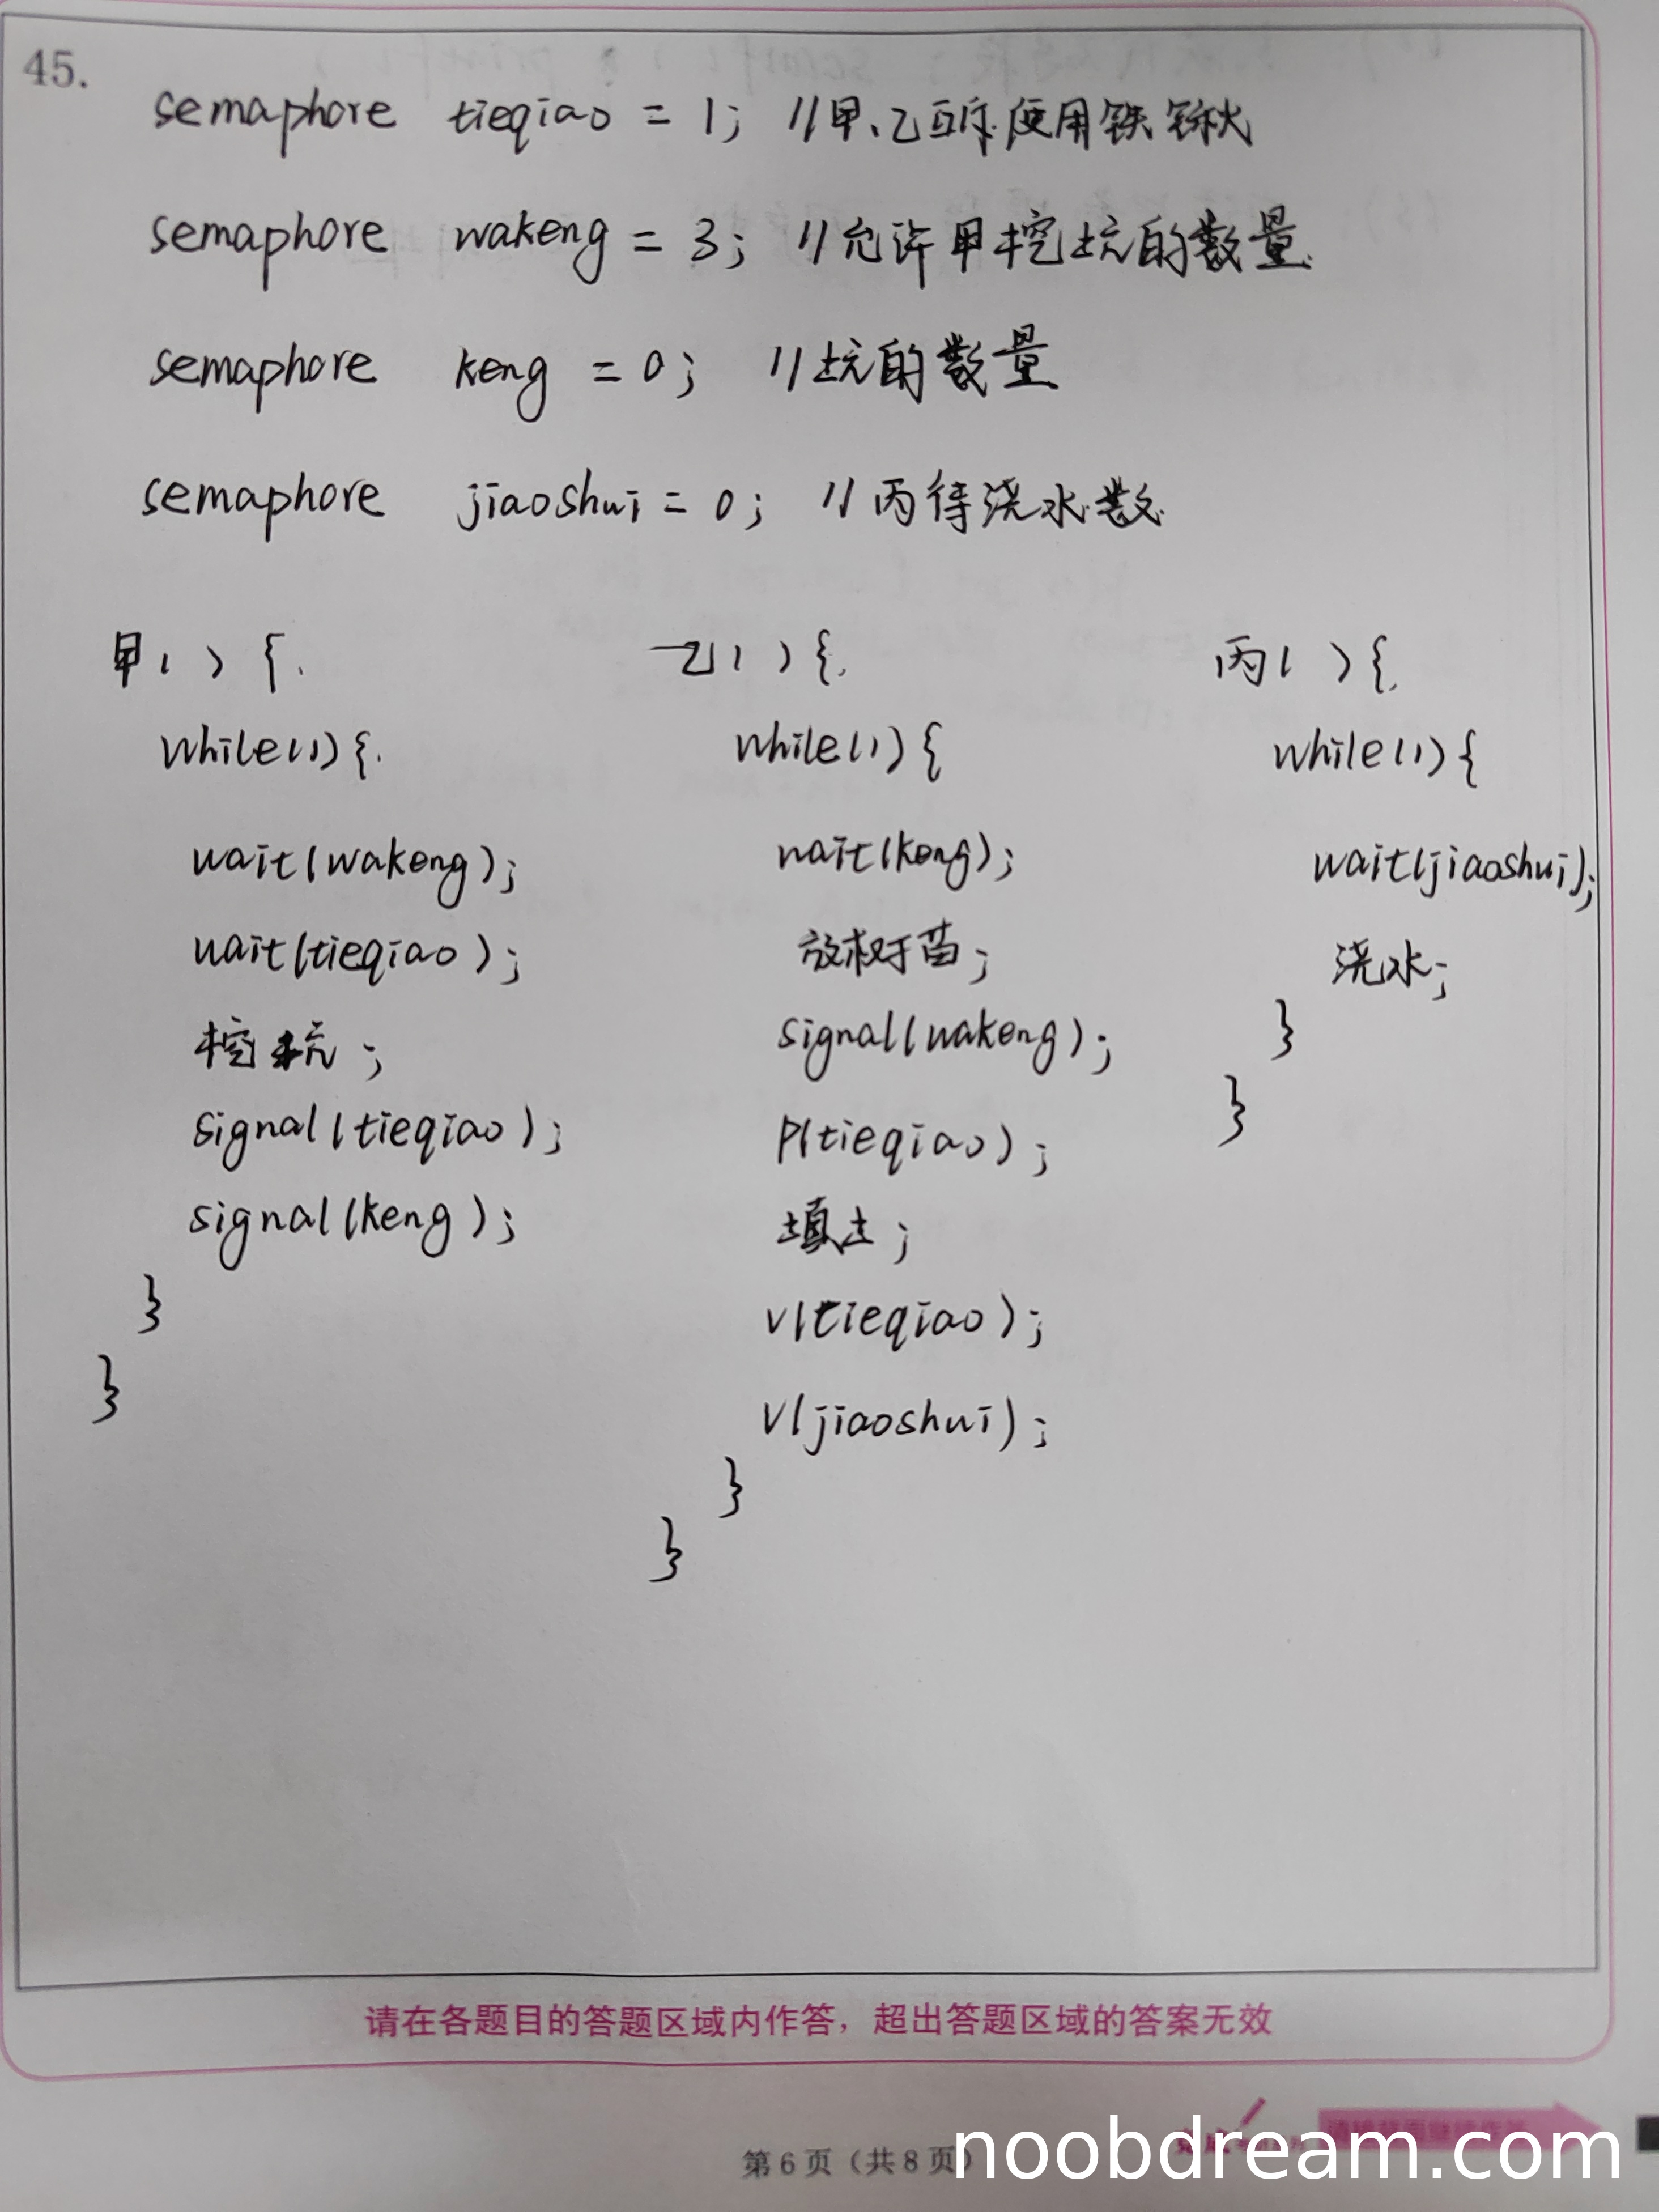 45.
semaphore tieqiao = 1; //甲、乙互斥使用铁锹
semaphore wakeng = 3; //允许甲挖坑的数量
semaphore keng = 0; //坑的数量
semaphore jiaoshui = 0; //丙待浇水数
甲( ) {
while(1){
wait(wakeng);
wait(tieqiao);
挖坑;
signal(tieqiao);
signal(keng);
}
}
乙( ){
while(1){
wait(keng);
放树苗;
signal(wakeng);
P(tieqiao);
填土;
V(tieqiao);
V(jiaoshui);
}
}
丙( ){
while(1){
wait(jiaoshui);
浇水;
}
}
请在各题目的答题区域内作答,超出答题区域的答案无效
第6页(共8页)
noobdream.com